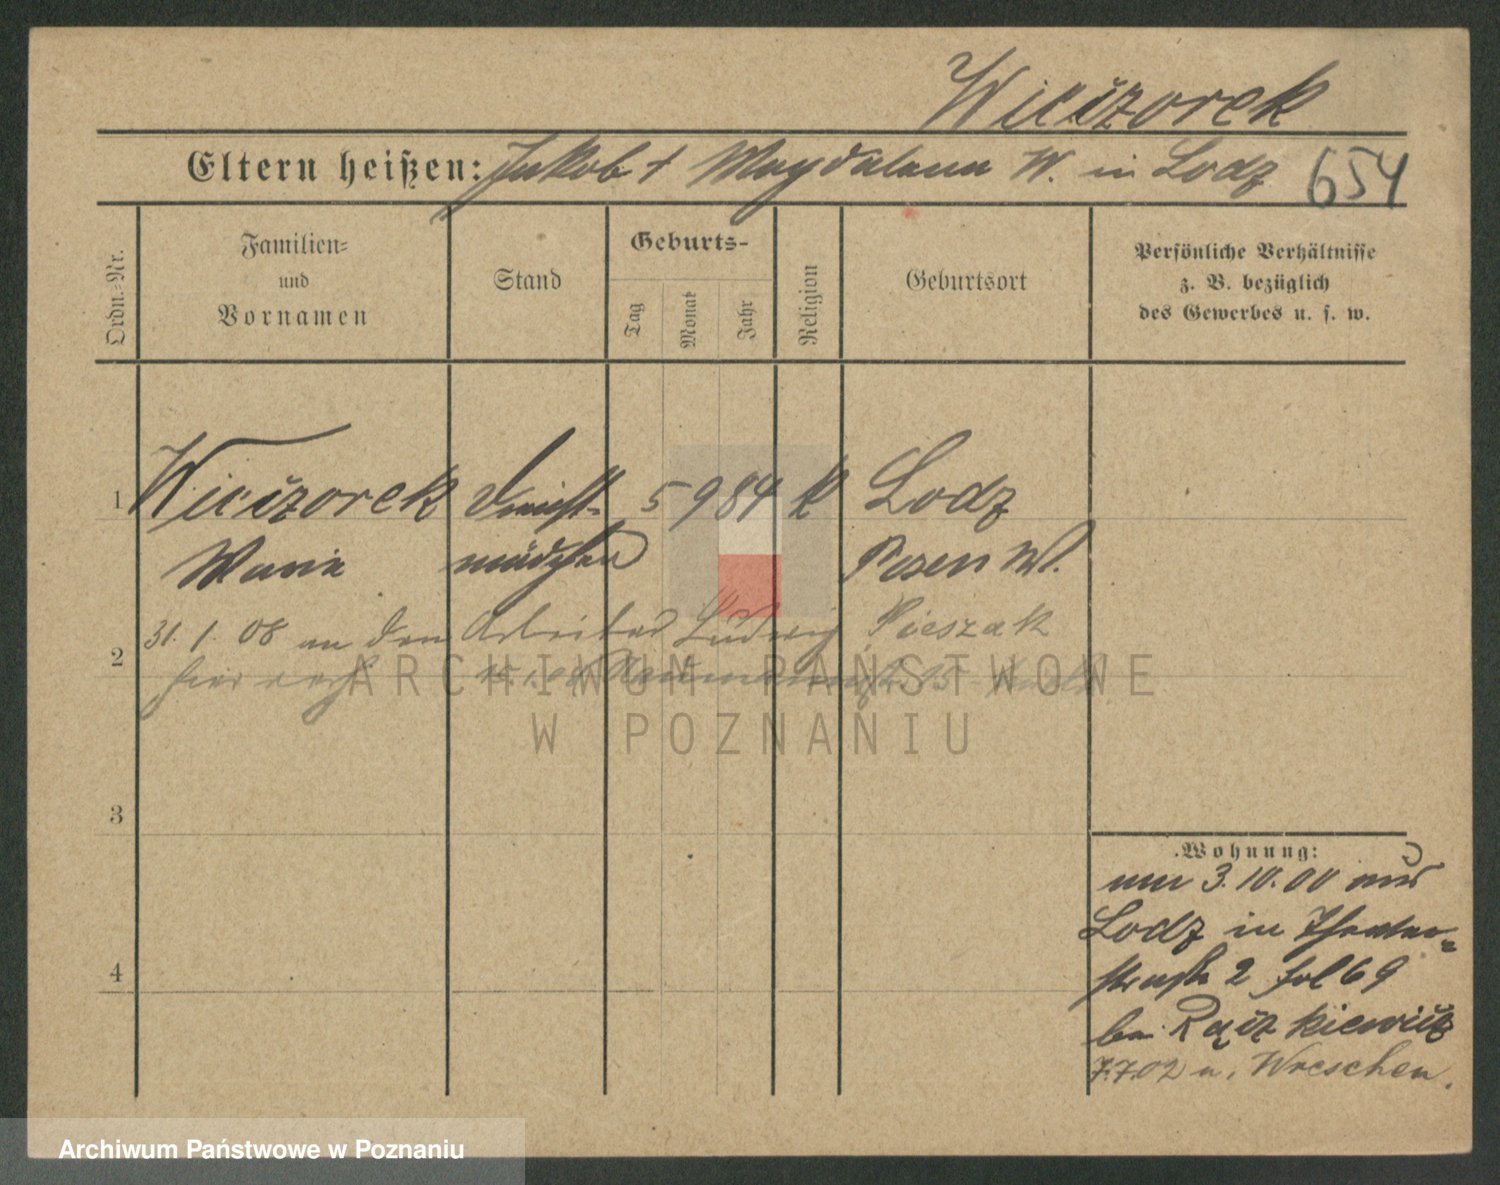 Wieczorek
Eltern heißen: Jakob + Magdalena W. in Lodz 654
Ordn.-Nr.
Familien-
und
Vornamen
Stand
Geburts-
Tag
Monat
Jahr
Religion
Geburtsort
Persönliche Verhältnisse
z. B. bezüglich
des Gewerbes u. s. w.
1 Wieczorek Dienst- 5 9 84 k Lodz
Marie mädchen Posen W.
31. 1. 08 an den Arbeiter Ludwig Pieszak
2 hier verh.
ARCHIWUM PAŃSTWOWE
W POZNANIU
3
4
Wohnung:
am 3.10.00 aus
Lodz in Theater-
straße 2 fol 69
bei
7.7.02 n. Wreschen.
Archiwum Państwowe w Poznaniu